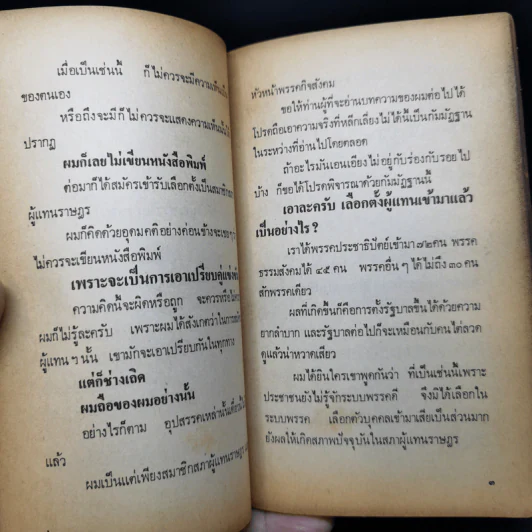 เมื่อเป็นเช่นนี้ ก็ไม่ควรจะมีความเห็น
ของตนเอง
หรือถึงจะมีก็ไม่ควรจะแสดงความเห็นนั้น
ปรากฏ
ผมก็เลยไม่เขียนหนังสือพิมพ์
ต่อมาก็ได้สมัครเข้ารับเลือกตั้งเป็นสมาชิกสภา
ผู้แทนราษฎร
ผมก็คิดด้วยอุดมคติอย่างค่อนข้างจะ
ไม่ควรจะเขียนหนังสือพิมพ์
เพราะจะเป็นการเอาเปรียบคู่แข่งขัน
ความคิดนี้จะผิดหรือถูก จะควรหรือไม่ควร
ผมก็ไม่รู้ละครับ เพราะผมได้สังเกตว่าในการ
ผู้แทน ๆ นั้น เขามักจะเอาเปรียบกันในทุกทาง
แต่ก็ช่างเถิด
ผมถือของผมอย่างนั้น
อย่างไรก็ตาม อุปสรรคเหล่านั้นก็
แล้ว
ผมเป็นแต่เพียงสมาชิกสภาผู้แทนราษฎร
หัวหน้าพรรคกิจสังคม
ขอให้ท่านผู้ที่จะอ่านบทความของผมต่อไปได้
โปรดถือเอาความจริงที่หลีกเลี่ยงไม่ได้นี้เป็นกัมมัฏฐาน
ในระหว่างที่อ่านไปโดยตลอด
ถ้าอะไรมันเอนเอียงไม่อยู่กับร่องกับรอยไป
บ้าง ก็ขอได้โปรดพิจารณาด้วยกัมมัฏฐานนี้
เอาละครับ เลือกตั้งผู้แทนเข้ามาแล้ว
เป็นอย่างไร ?
เราได้พรรคประชาธิปัตย์เข้ามา ๗๒ คน พรรค
ธรรมสังคมได้ ๔๕ คน พรรคอื่น ๆ ได้ไม่ถึง ๓๐ คน
สักพรรคเดียว
ผลที่เกิดขึ้นก็คือการตั้งรัฐบาลขึ้นได้ด้วยความ
ยากลำบาก และรัฐบาลต่อไปก็จะเหมือนกับคนไต่ลวด
ดูแล้วน่าหวาดเสียว
ผมได้ยินใครเขาพูดกันว่า ที่เป็นเช่นนี้เพราะ
ประชาชนยังไม่รู้จักระบบพรรคดี จึงมิได้เลือกใน
ระบบพรรค เลือกตัวบุคคลเข้ามาเสียเป็นส่วนมาก
ยังผลให้เกิดสภาพปัจจุบันในสภาผู้แทนราษฎร
๓